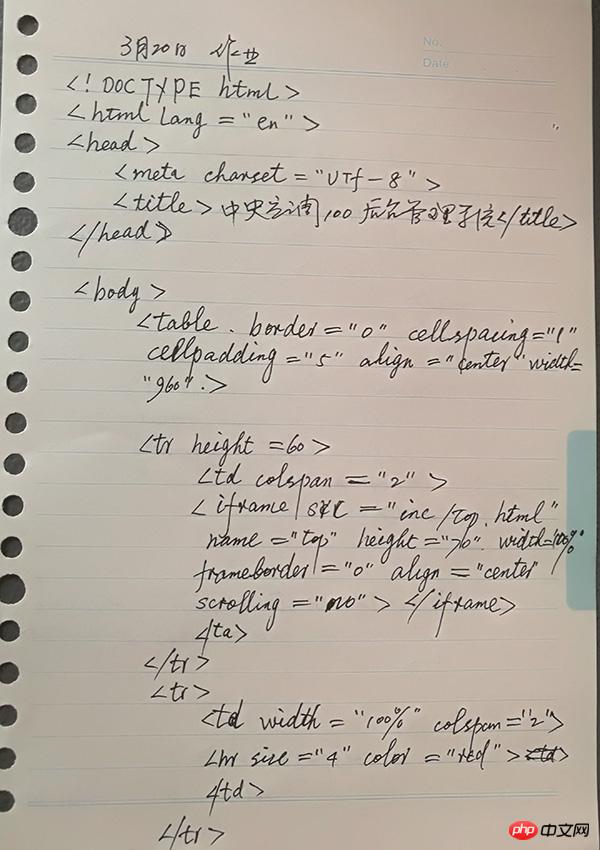 No.
Date
3月20日 作业
<!DOCTYPE html>
<html lang="en">
<head>
<meta charset="UTf-8">
<title>中央空调100后台管理系统</title>
</head>
<body>
<table border="0" cellspacing="1"
cellpadding="5" align="center" width=
"960">
<tr height=60>
<td colspan="2">
<iframe src="inc/top.html"
name="top" height="70" width=100%
frameborder="0" align="center"
scrolling="no"></iframe>
</ta>
</tr>
<tr>
<td width="100%" colspan="2">
<hr size="4" color="red">
</td>
</tr>
php 中文网